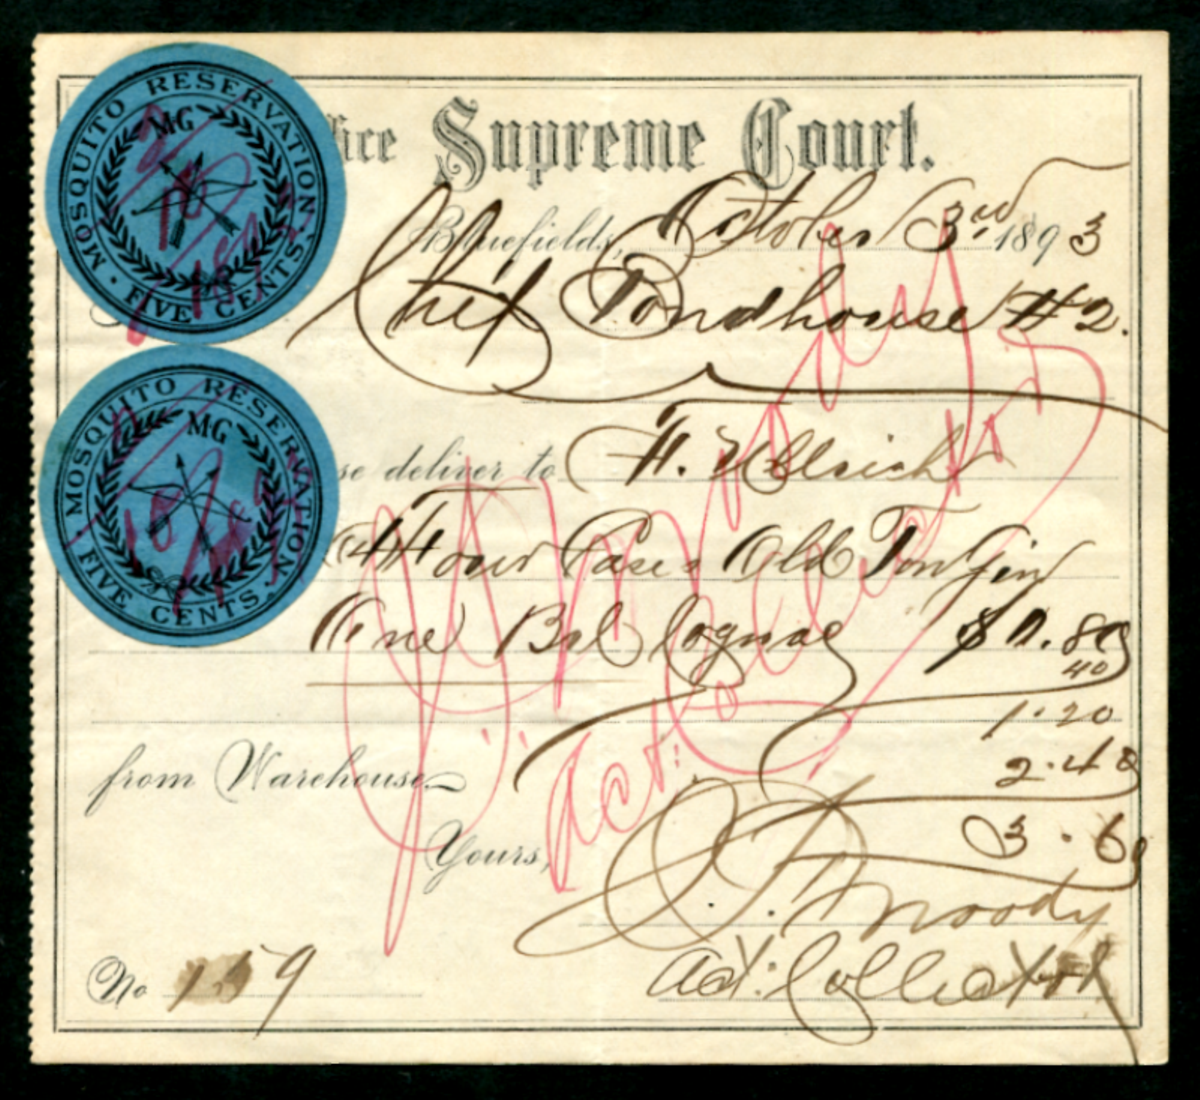 MOSQUITO RESERVATION.
MG
FIVE CENTS.
MOSQUITO RESERVATION.
MG
FIVE CENTS.
ice Supreme Court.
Bluefields, October 3rd 1893
Chief Bondhouse #2.
se deliver to F. Ullrich
(4) Four Cases Old Tom Gin
One Brl Cognac $ .80
40
1.20
2.40
3.60
from Warehouse
Yours,
J. F. Moody
Act: Collector
No 159
J. F. Moody
Act. Collector